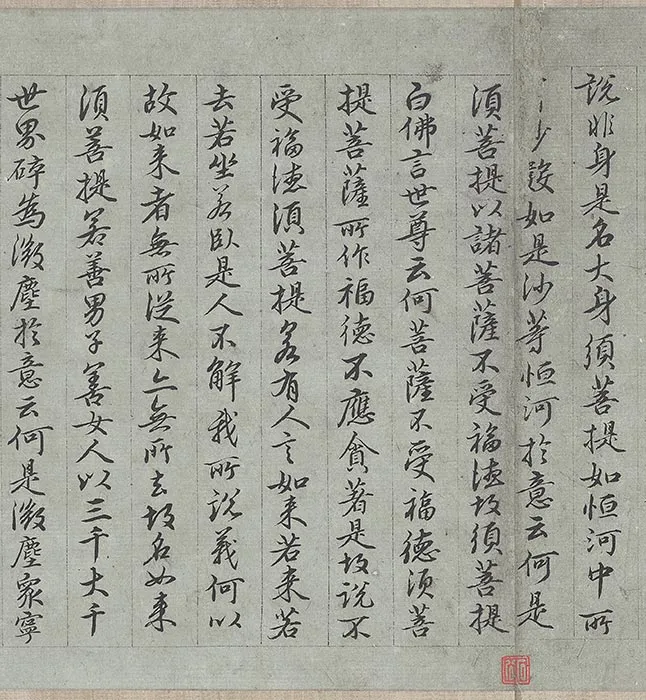 說非身是名大身須菩提如恒河中所
沙數如是沙等恒河於意云何是
須菩提以諸菩薩不受福德故須菩提
白佛言世尊云何菩薩不受福德須菩
提菩薩所作福德不應貪著是故說不
受福德須菩提若有人言如來若來若
去若坐若臥是人不解我所說義何以
故如來者無所從來亦無所去故名如來
須菩提若善男子善女人以三千大千
世界碎為微塵於意云何是微塵眾寧